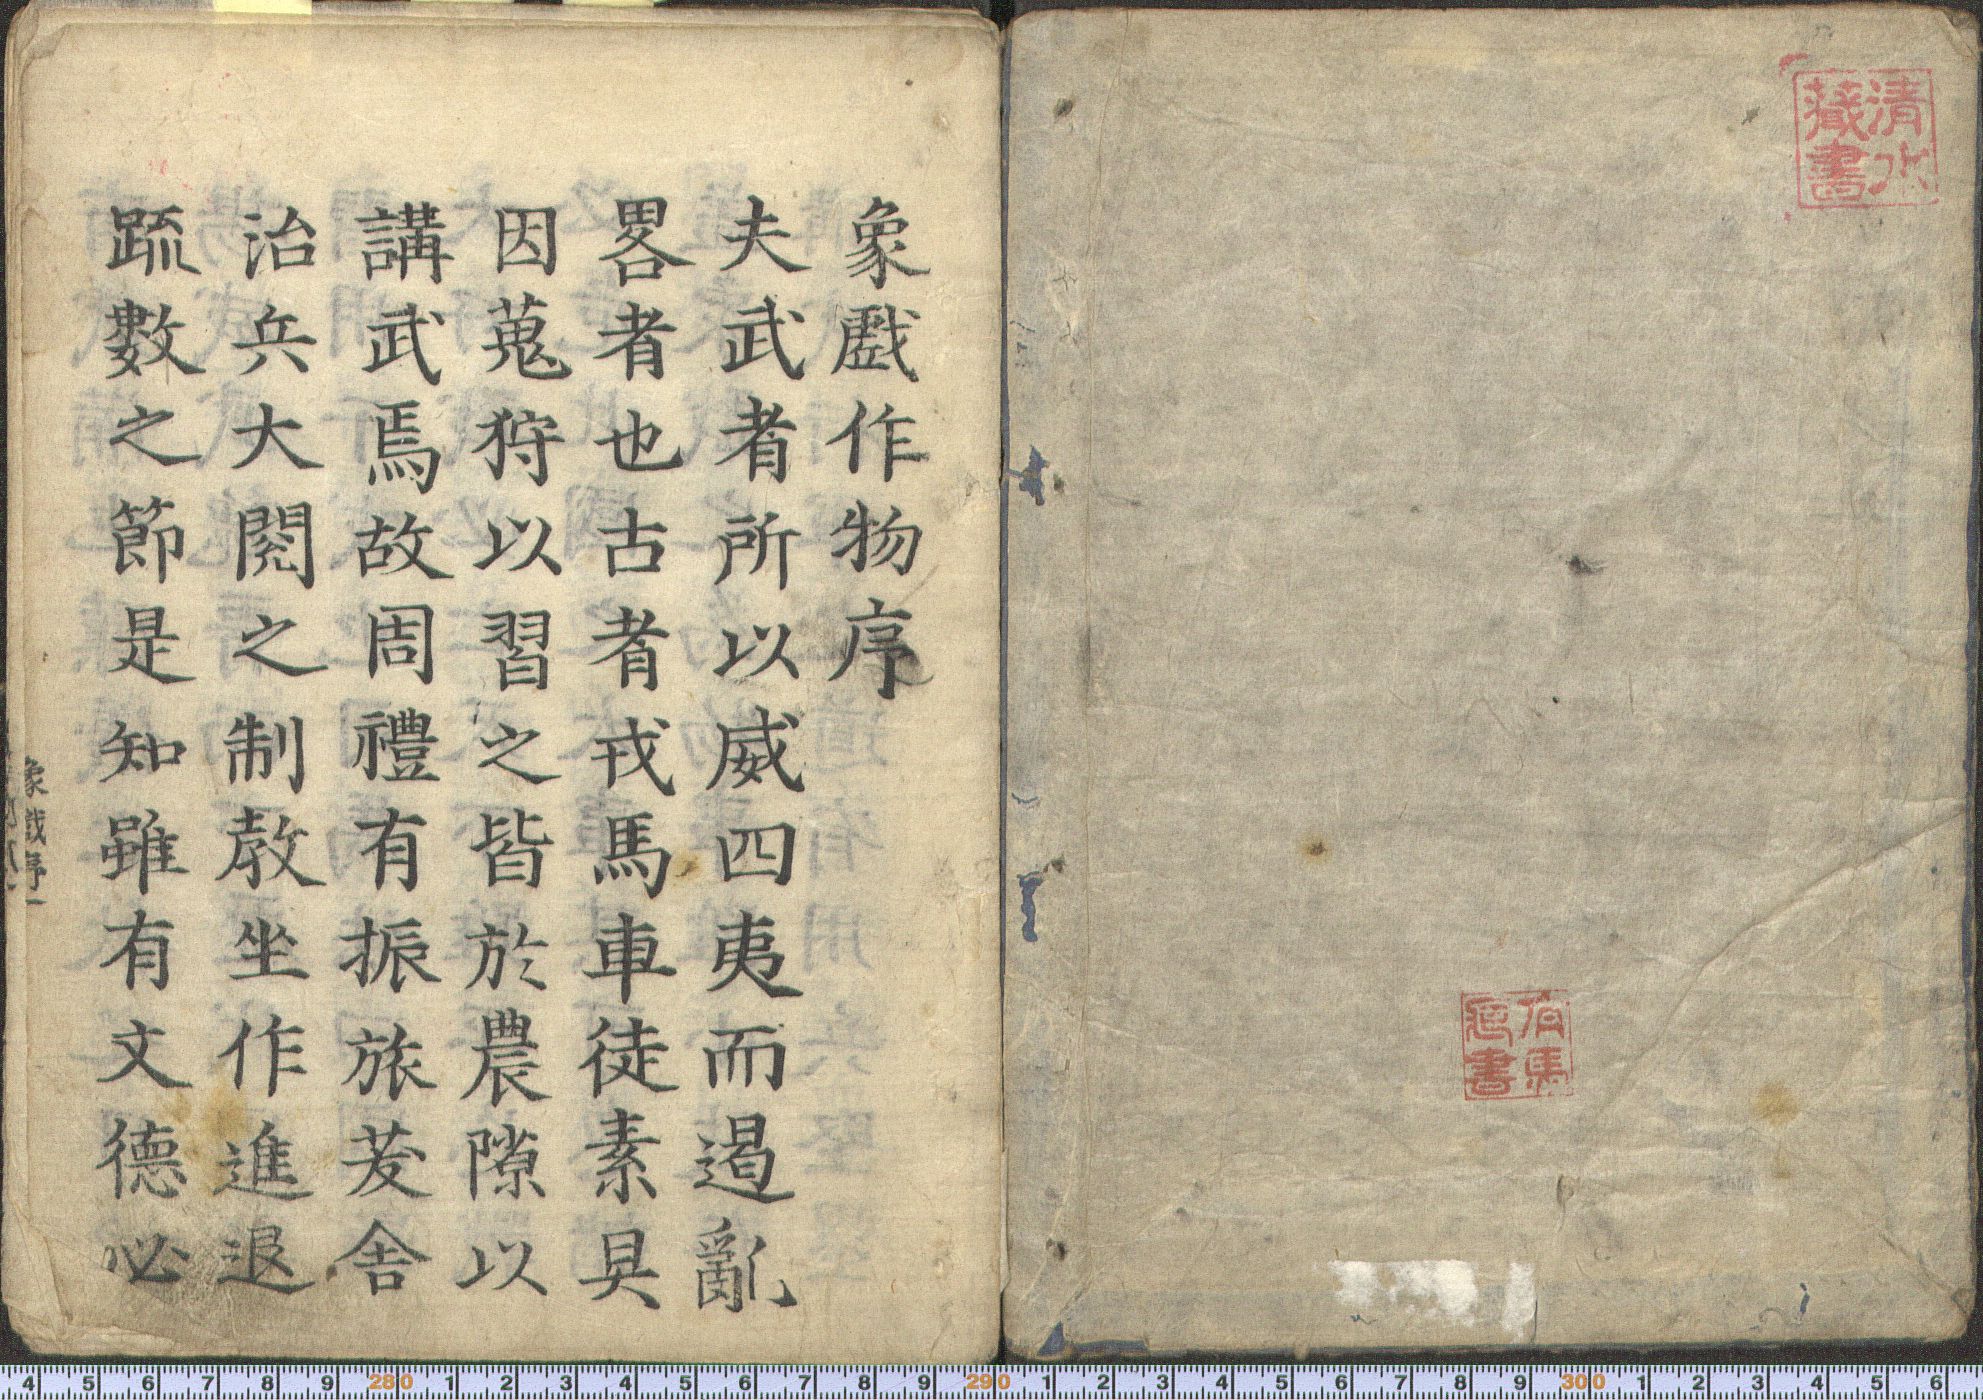 清水
藏書
象戲作物序
夫武者所以威四夷而遏亂
畧者也古者戎馬車徒素具
因蒐狩以習之皆於農隙以
講武焉故周禮有振旅茇舍
治兵大閱之制教坐作進退
疏數之節是知雖有文德必
象戲序一
4 5 6 7 8 9 280 1 2 3 4 5 6 7 8 9 290 1 2 3 4 5 6 7 8 9 300 1 2 3 4 5 6